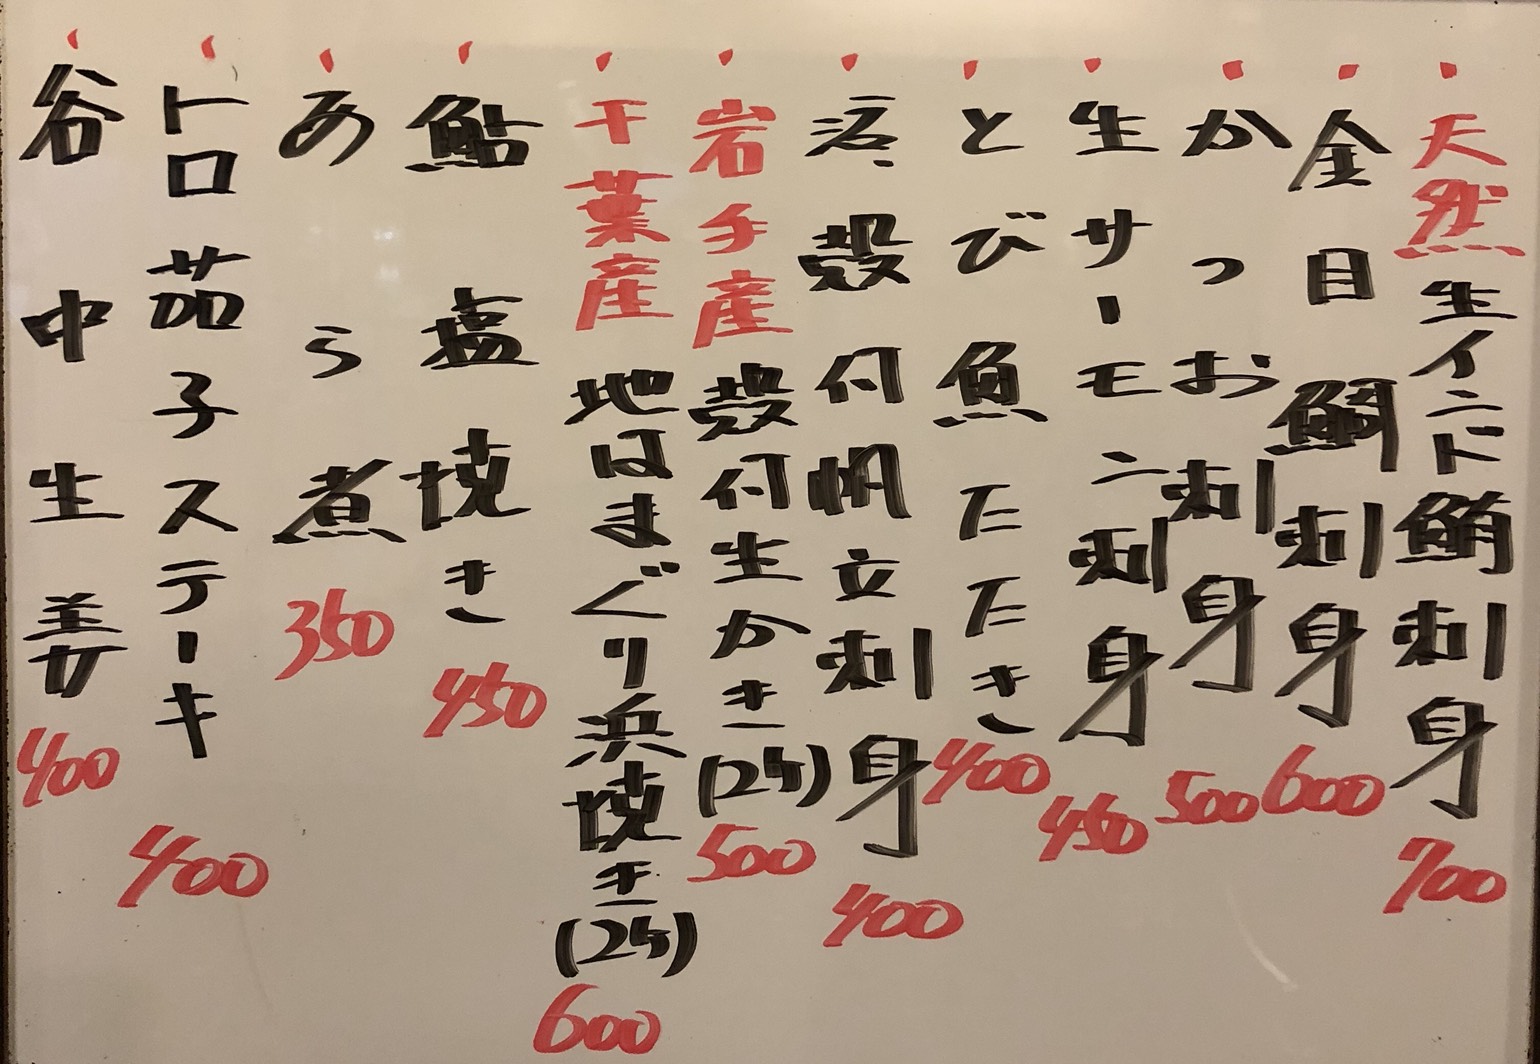 天然生インド鮪刺身 700
金目鯛刺身 600
かつお刺身 500
生サーモン刺身 450
とび魚たたき 400
活殻付帆立刺身 400
岩手産殻付生かき(2ケ) 500
千葉産地はまぐり浜焼き(2ケ) 600
鮎塩焼き 450
あら煮 350
トロ茄子ステーキ 400
谷中生姜 400